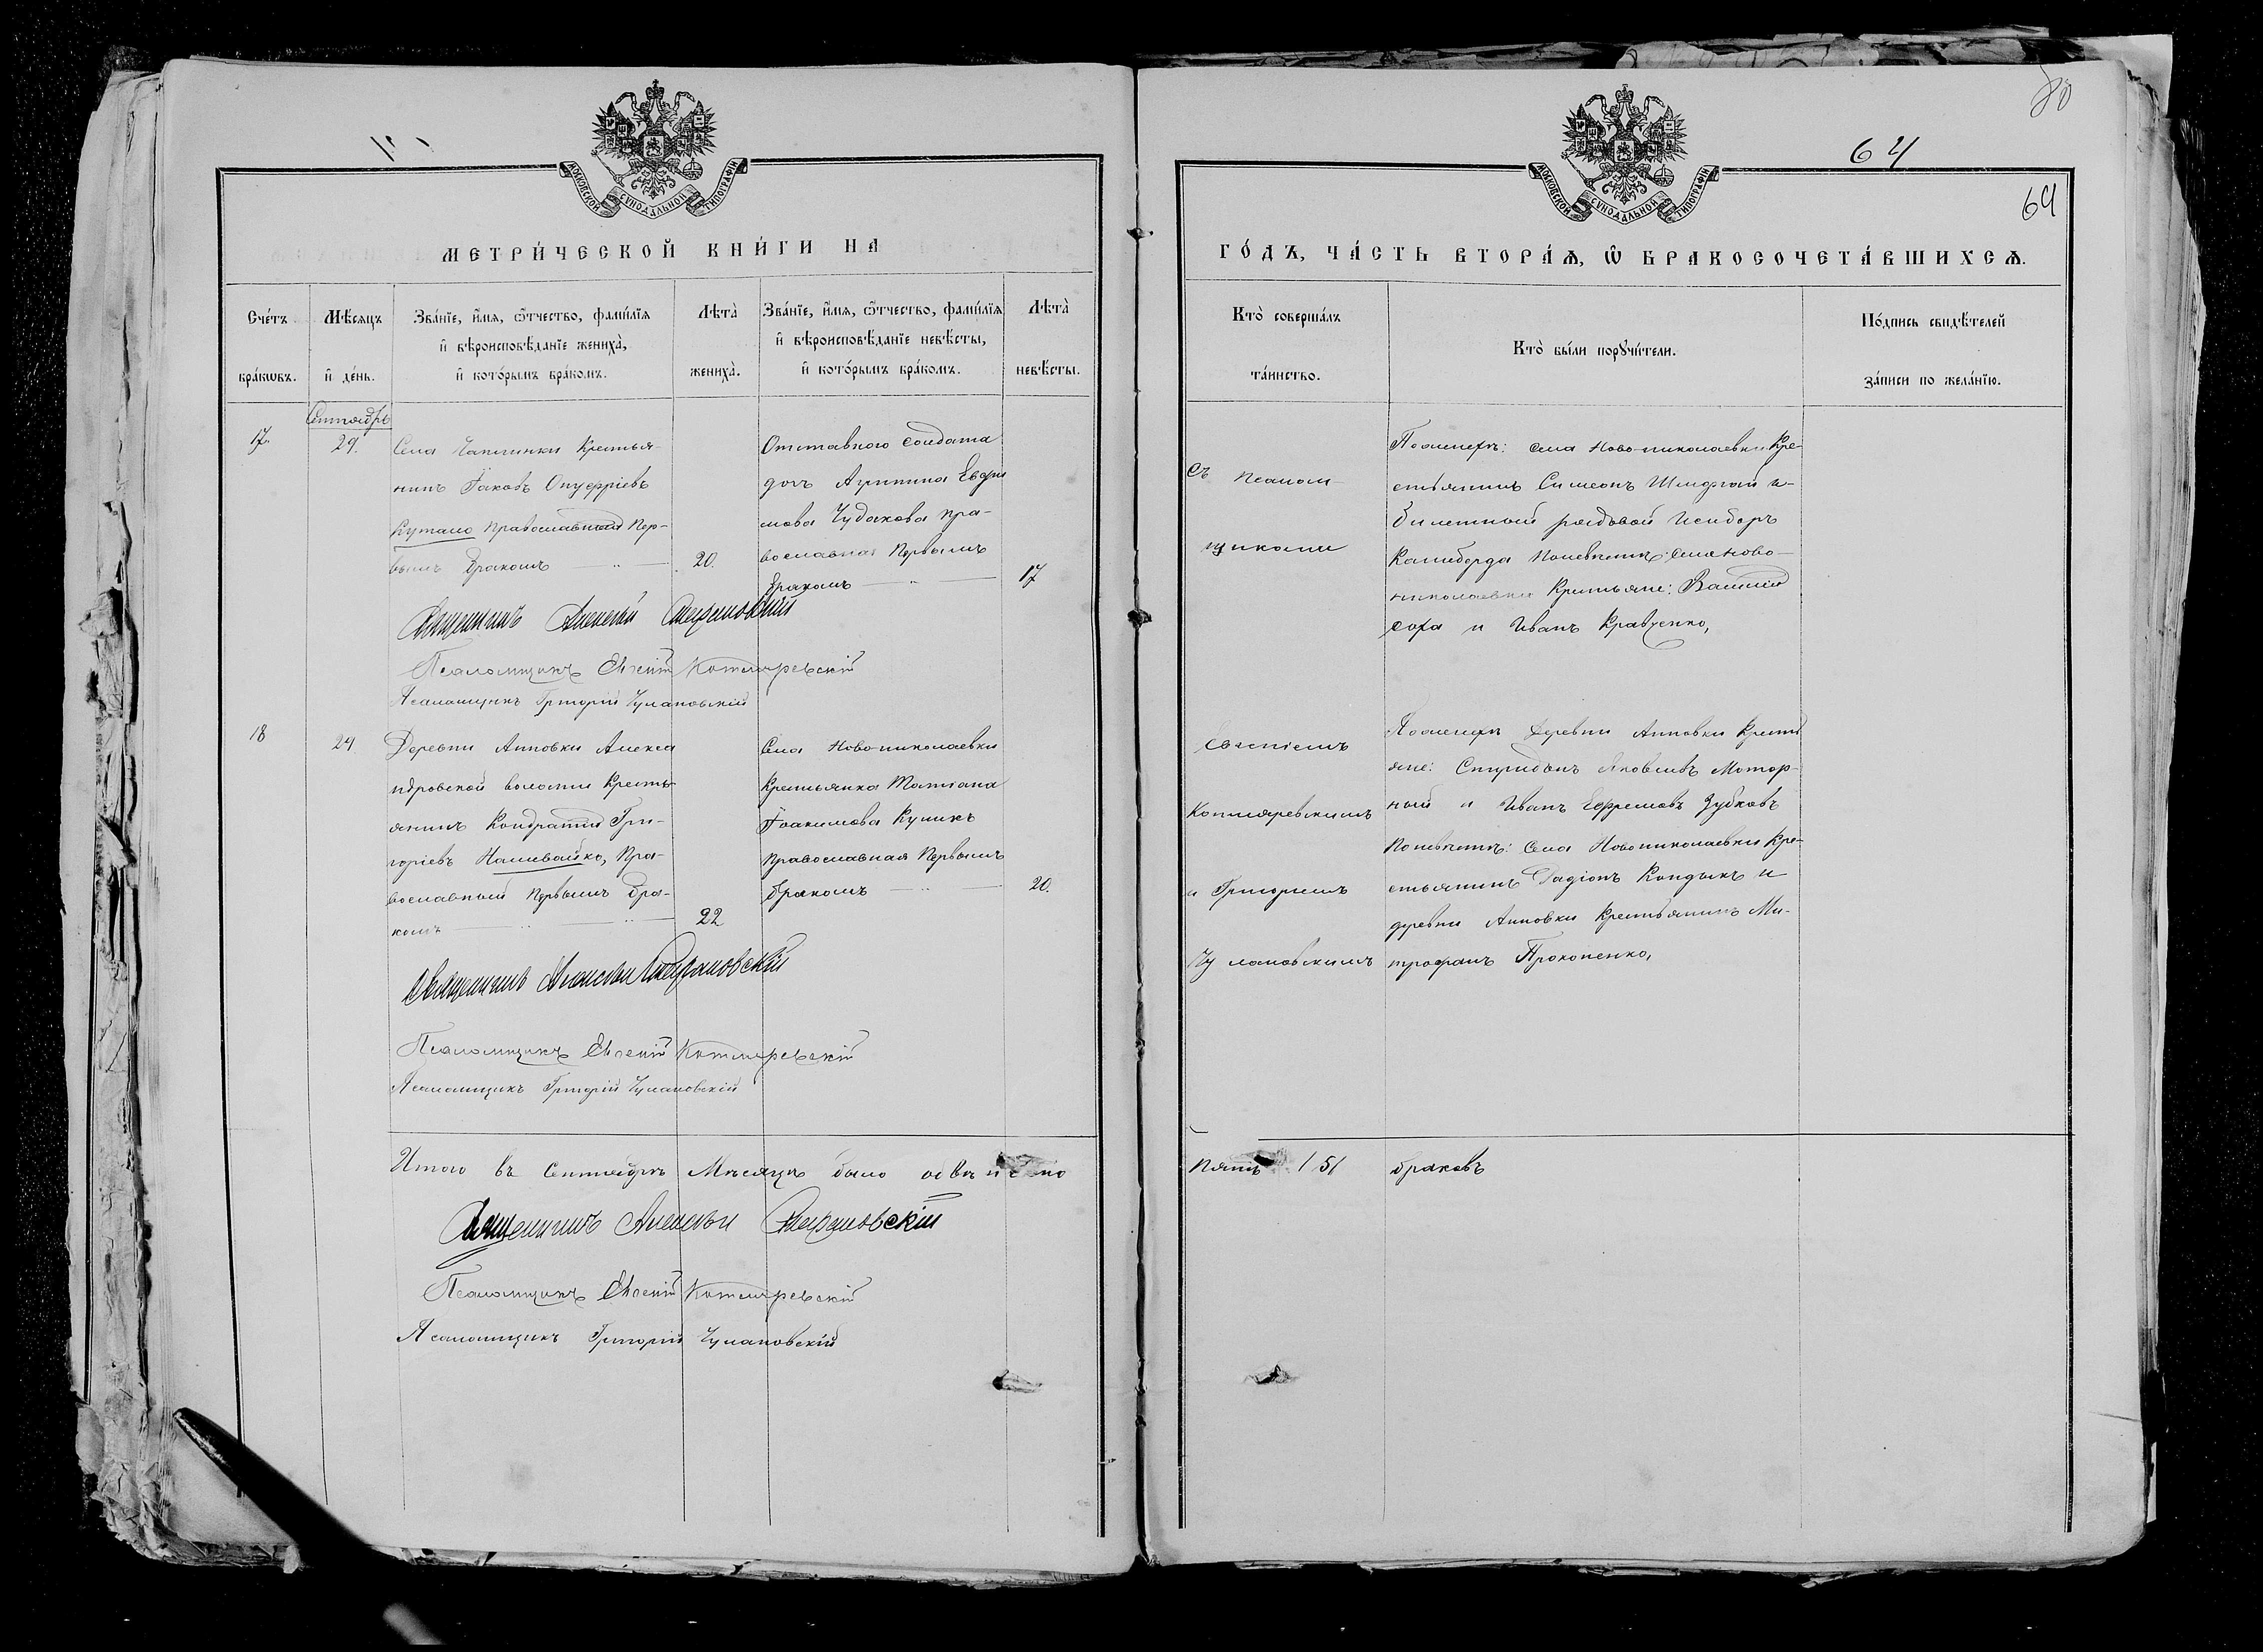 80
64
64
МОСКОВСКОЙ СѴНОДАЛЬНОЙ ТИПОГРАФІИ
МЕТРИ́ЧЕСКОЙ КНИ́ГИ НА
Сче́тъ бра́кѡвъ.
Мѣ́сяцъ и҆ де́нь.
Зва́нїе, и҆́мя, ѻ҆́тчество, фамі́лїя
и҆ вѣроисповѣ́данїе жениха̀,
и҆ кото́рымъ бра́комъ.
Лѣта̀ жениха̀.
Зва́нїе, и҆́мя, ѻ҆́тчество, фамі́лїя
и҆ вѣроисповѣ́данїе невѣ́сты,
и҆ кото́рымъ бра́комъ.
Лѣта̀ невѣ́сты.
Сентябрь
17.
29.
Села Чаплинки Крестья-
нинъ Іаковъ Онуфріевъ
Кутало Православный Пер-
вымъ бракомъ
20.
Отставного солдата
дочь Агрипина Евфи
мова Чудакова пра-
вославная Первымъ
бракомъ
17
Священникъ Алексѣй
Псаломщикъ Евгеній Котляревскій
Псаломщикъ Григорій Чулановскій
18
29
Деревни Анновки Алекса
ндровской волости Кресть
янинъ Кондратій Гри-
горіевъ Наливайко, Пра-
вославный Первымъ бра-
комъ
22
Села Ново-николаевки
Крестьянка Татіана
Іоакимова Куликъ
Православная Первымъ
бракомъ
20.
Священникъ Алексѣй
Псаломщикъ Евгеній Котляревскій
Псаломщикъ Григорій Чулановскій
Итого въ Сентябрѣ Мѣсяцѣ было повѣнчано
Священникъ Алексѣй
Псаломщикъ Евгеній Котляревскій
Псаломщикъ Григорій Чулановскій
МОСКОВСКОЙ СѴНОДАЛЬНОЙ ТИПОГРАФІИ
ГО́ДЪ, ЧА́СТЬ ВТОРА́Ѧ, Ѡ҆ БРАКОСОЧЕТА́ВШИХСѦ.
Кто̀ соверша́лъ
та́инство.
Кто̀ бы́ли порꙋчи́тели.
По́дпись свидѣ́телей
за́писи по жела́нїю.
Съ Псалом-
щиками
Евгеніемъ
Котляревскимъ
и Григоріемъ
Чулановскимъ
По женихѣ: села Ново-николаевки Кре-
стьянинъ Симеонъ и
билетный рядовой Исидоръ
Калиберда По невѣстѣ: села Ново-
николаевки Крестьяне: Василій
Соха и Иванъ Кравченко,
По женихѣ деревни Анновки Кресть
яне: Спиридонъ Яковлевъ Мотор-
ный и Иванъ Ефремовъ Зубковъ
По невѣстѣ: Села Новониколаевки Кре-
стьянинъ Радіонъ Кондыкъ и
деревни Анновки Крестьянинъ Ми-
трофанъ Прокопенко,
Пять /5/ браковъ